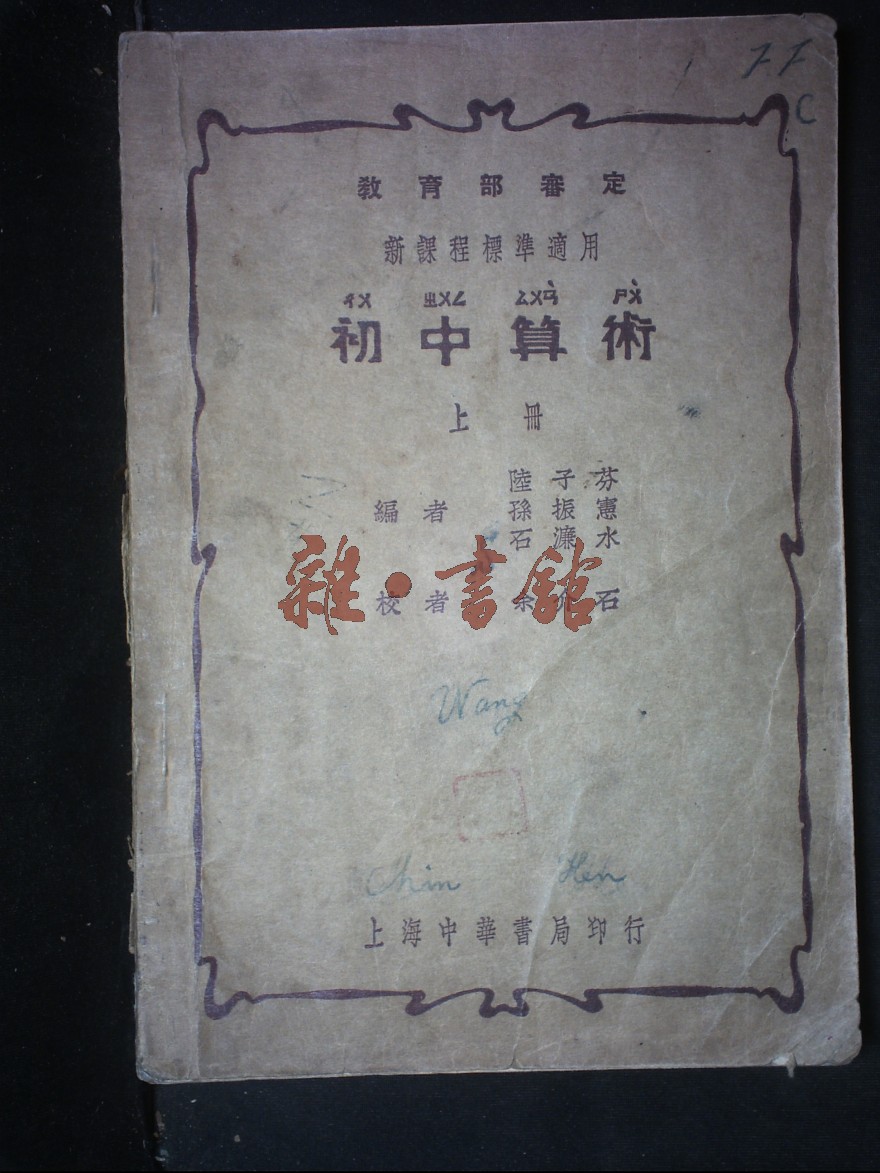 F F
C
教育部審定
新課程標準適用
ㄔㄨ ㄓㄨㄥ ㄙㄨㄢˋ ㄕㄨˋ
初中算術
上冊
陸子芬
編者 孫振憲
石濂水
校者 余介石
雜·書館
Wang
Chin Hen
上海中華書局印行